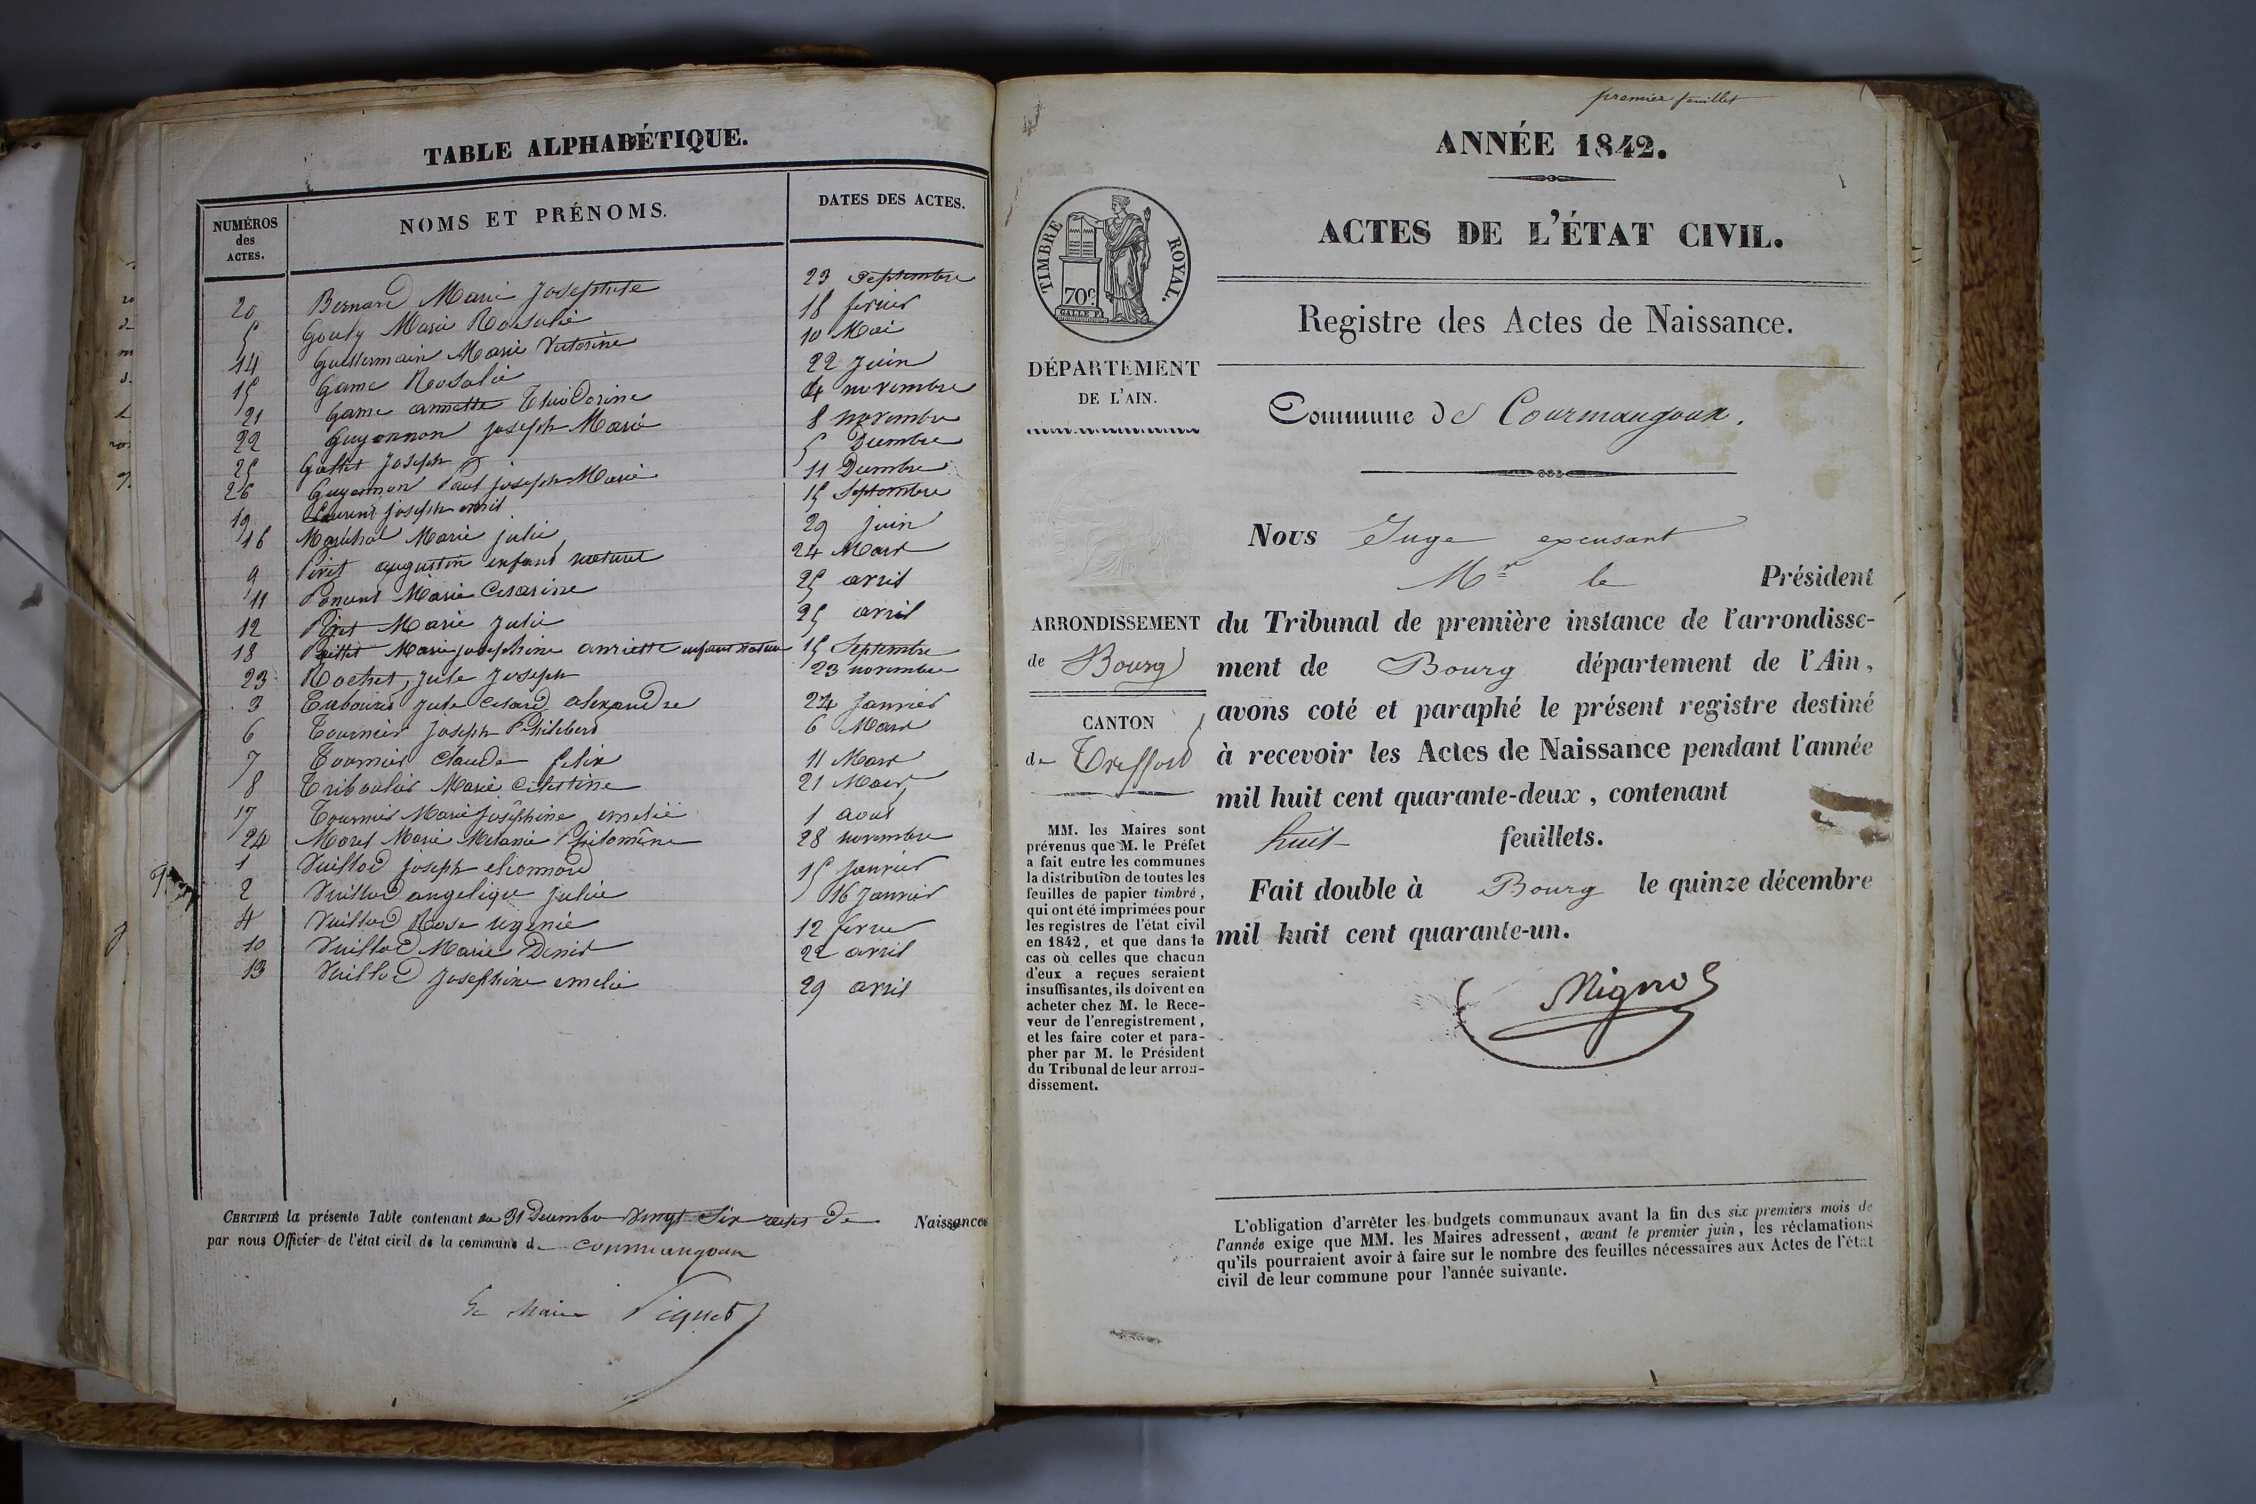 TABLE ALPHABÉTIQUE.
NUMÉROS des ACTES.
NOMS ET PRÉNOMS.
DATES DES ACTES.
20 Bernard Marie Josephte 23 Septembre
5 Gouly Marie Rosalie 18 fevrier
14 Guillermain Marie Victorine 10 Mai
15 Game Rosalie 22 Juin
21 Game annette Théodorine 4 novembre
22 Guyennon Joseph Marie 8 novembre
25 Joseph 5 Decembre
26 Guyennon Paul joseph Marie 11 Decembre
19 Laurent joseph 15 Septembre
16 Maréchal Marie julie 29 juin
9 Piret augustin enfant naturel 24 Mars
11 Poncent Marie Cesarine 25 avril
12 Piret Marie Julie 25 avril
18 Marie josephine anriette enfant naturel 15 Septembre
23 Rochet, Jule Joseph 23 novembre
3 Jule Cesard alexandre 24 Janvier
6 Tournier Joseph Philibert 6 Mars
7 Tournier Claude felix 11 Mars
8 Triboulier Marie Celestine 21 Mars
17 Tournier Marie Joséphine emelie 1 aout
24 Morel Marie Melanie Philomêne 28 novembre
1 Vuillod Joseph eleonnord 15 Janvier
2 Vuillod angelique julie 16 Janvier
4 Vuillod Rose ugenie 12 fevrier
10 Vuillod Marie Denis 22 avril
13 Vuillod Josephine emelie 29 avril
CERTIFIÉ la présente Table contenant au 31 Decembre vingt Six actes de Naissances
par nous Officier de l'état civil de la commune de Courmangoux
Le Maire Piquet
premier feuillet
ANNÉE 1842.
ACTES DE L'ÉTAT CIVIL.
TIMBRE ROYAL.
70c
Registre des Actes de Naissance.
DÉPARTEMENT
DE L'AIN.
Commune de Courmangoux.
Nous Juge excusant
Mr le Président
ARRONDISSEMENT
de Bourg
du Tribunal de première instance de l'arrondisse-
ment de Bourg département de l'Ain,
avons coté et paraphé le présent registre destiné
CANTON
de Treffort
à recevoir les Actes de Naissance pendant l'année
mil huit cent quarante-deux, contenant
huit feuillets.
Fait double à Bourg le quinze décembre
mil huit cent quarante-un.
Mignot
MM. les Maires sont
prévenus que M. le Préfet
a fait entre les communes
la distribution de toutes les
feuilles de papier timbré,
qui ont été imprimées pour
les registres de l'état civil
en 1842, et que dans le
cas où celles que chacun
d'eux a reçues seraient
insuffisantes, ils doivent en
acheter chez M. le Rece-
veur de l'enregistrement,
et les faire coter et para-
pher par M. le Président
du Tribunal de leur arron-
dissement.
L'obligation d'arrêter les budgets communaux avant la fin des six premiers mois de
l'année exige que MM. les Maires adressent, avant le premier juin, les réclamations
qu'ils pourraient avoir à faire sur le nombre des feuilles nécessaires aux Actes de l'état
civil de leur commune pour l'année suivante.